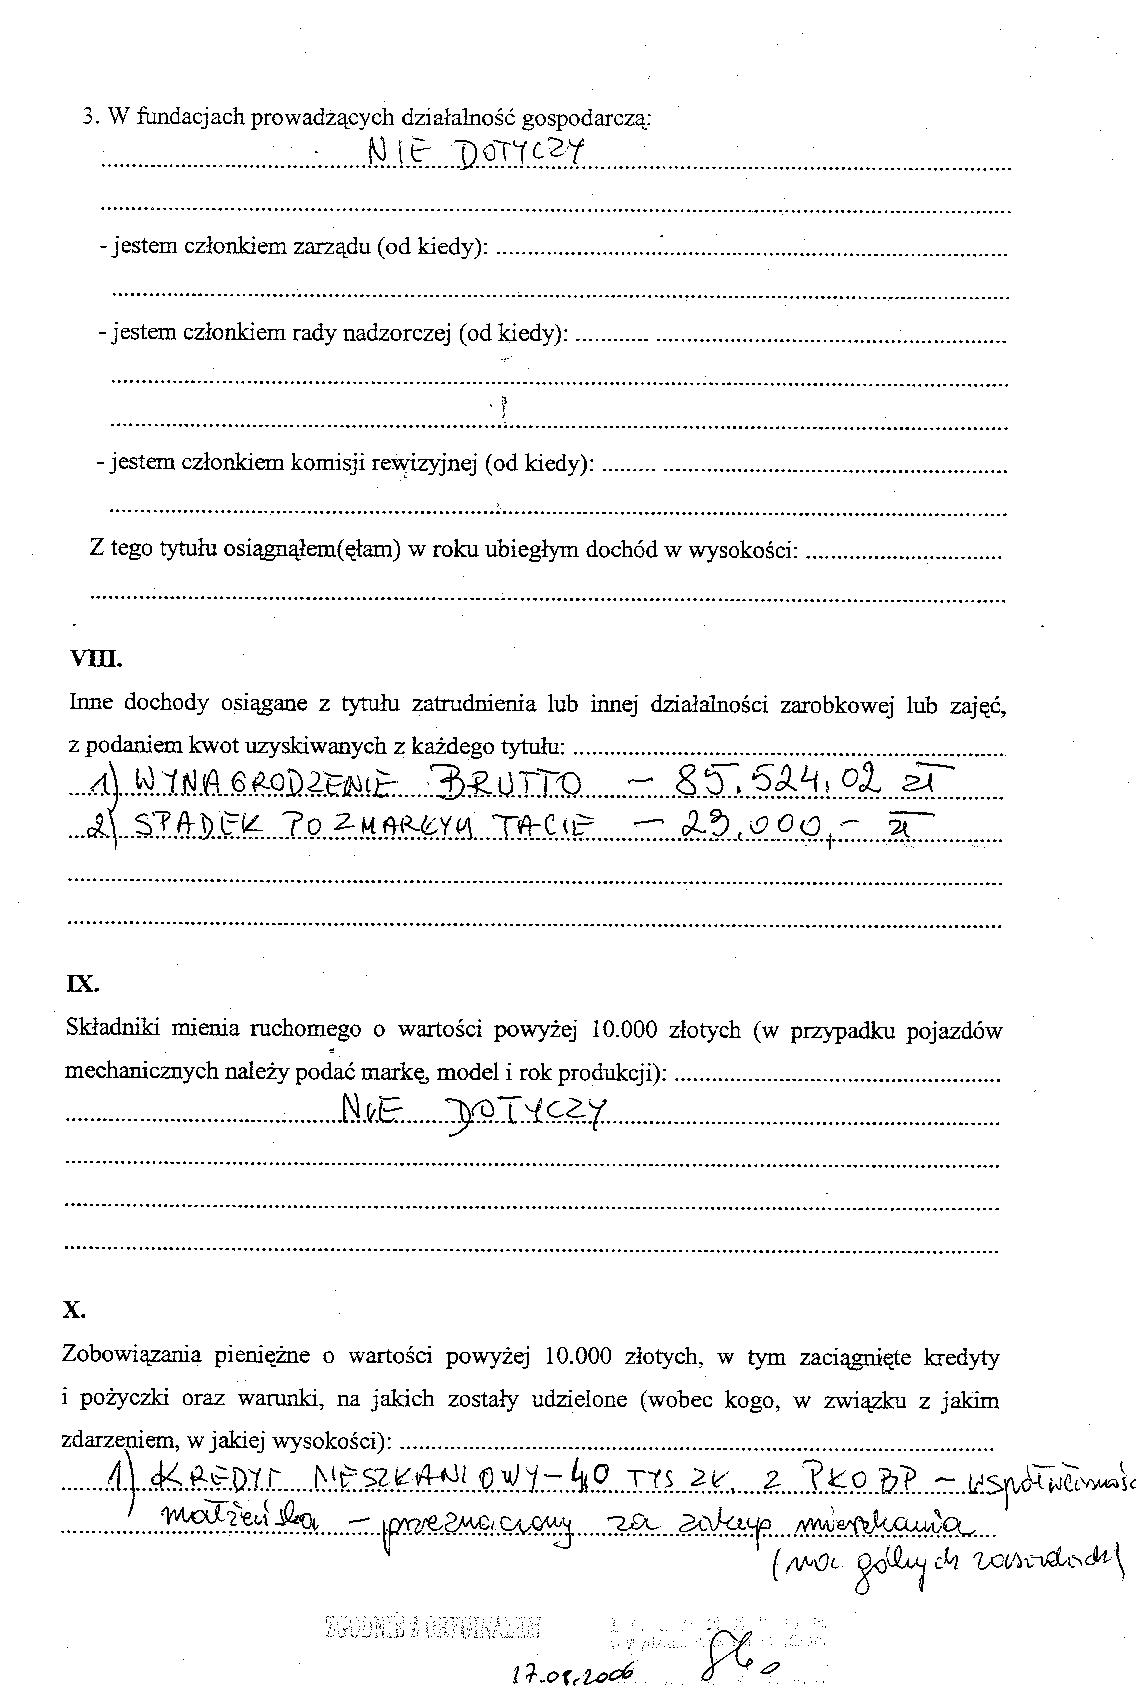 3. W fundacjach prowadzących działalność gospodarczą:
NIE DOTYCZY
- jestem członkiem zarządu (od kiedy):
- jestem członkiem rady nadzorczej (od kiedy):
- jestem członkiem komisji rewizyjnej (od kiedy):
Z tego tytułu osiągnąłem(ęłam) w roku ubiegłym dochód w wysokości:
VIII.
Inne dochody osiągane z tytułu zatrudnienia lub innej działalności zarobkowej lub zajęć,
z podaniem kwot uzyskiwanych z każdego tytułu:
1) WYNAGRODZENIE BRUTTO – 85.524,02 zł
2) SPADEK PO ZMARŁYM TACIE – 23.000,– zł
IX.
Składniki mienia ruchomego o wartości powyżej 10.000 złotych (w przypadku pojazdów
mechanicznych należy podać markę, model i rok produkcji):
NIE DOTYCZY
X.
Zobowiązania pieniężne o wartości powyżej 10.000 złotych, w tym zaciągnięte kredyty
i pożyczki oraz warunki, na jakich zostały udzielone (wobec kogo, w związku z jakim
zdarzeniem, w jakiej wysokości):
1) KREDYT MIESZKANIOWY – 40 TYS ZŁ. Z PKO BP –
małżeńska – przeznaczony za zakup mieszkania
(na zasadach)
ZGODNIE Z ORYGINAŁEM
2006